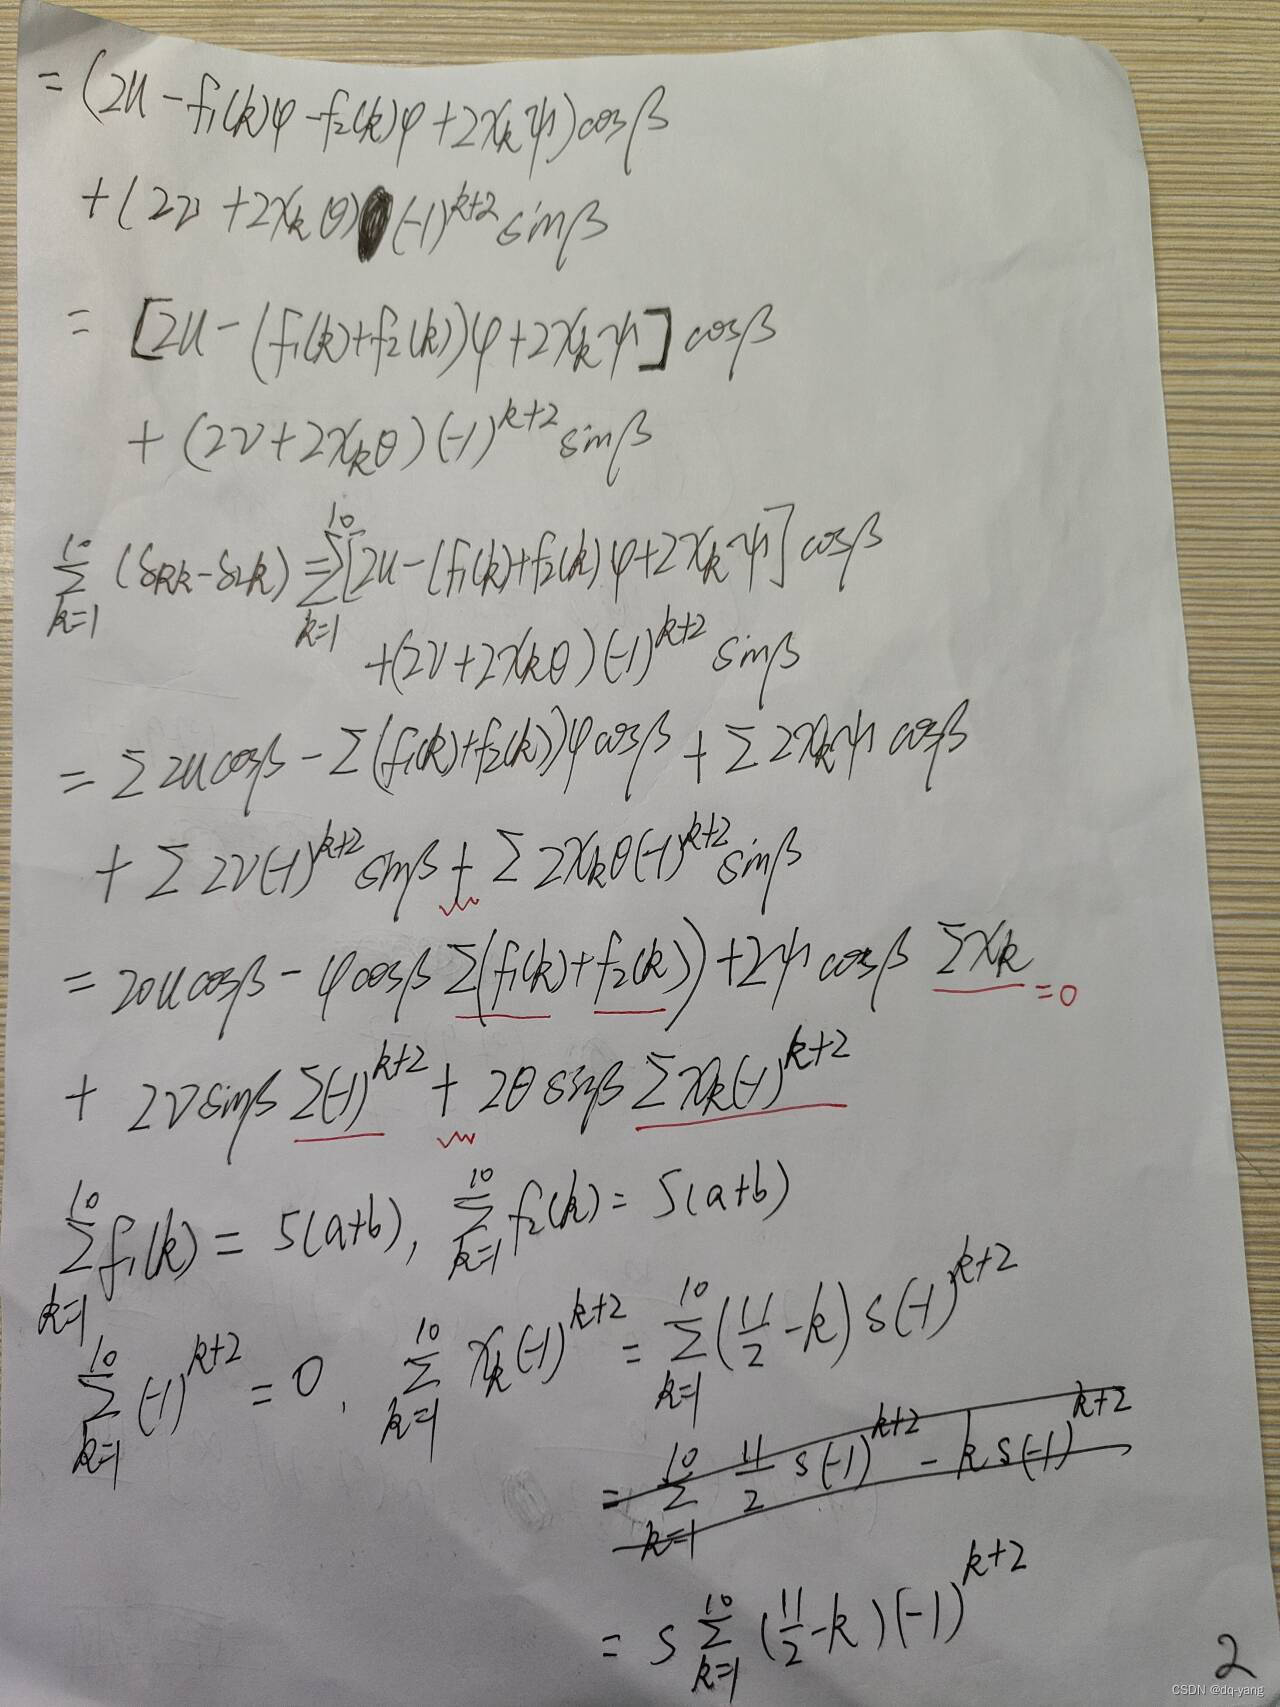 = (2u - f₁(k)φ - f₂(k)φ + 2xₖψ) cosβ
+ (2v + 2xₖθ) (-1)^{k+2} sinβ
= [2u - (f₁(k)+f₂(k))φ + 2xₖψ] cosβ
+ (2v + 2xₖθ) (-1)^{k+2} sinβ
∑_{k=1}^{10} (δ_{Rk} - δ_{Lk}) = ∑_{k=1}^{10} [2u - (f₁(k)+f₂(k)) φ + 2xₖψ] cosβ
+ (2v + 2xₖθ) (-1)^{k+2} sinβ
= ∑ 2u cosβ - ∑ (f₁(k)+f₂(k)) φ cosβ + ∑ 2xₖψ cosβ
+ ∑ 2v (-1)^{k+2} sinβ + ∑ 2xₖθ (-1)^{k+2} sinβ
= 20u cosβ - φ cosβ ∑ (f₁(k)+f₂(k)) + 2ψ cosβ ∑ xₖ = 0
+ 2v sinβ ∑ (-1)^{k+2} + 2θ sinβ ∑ xₖ (-1)^{k+2}
∑_{k=1}^{10} f₁(k) = 5(a+b), ∑_{k=1}^{10} f₂(k) = 5(a+b)
∑_{k=1}^{10} (-1)^{k+2} = 0, ∑_{k=1}^{10} xₖ (-1)^{k+2} = ∑_{k=1}^{10} (11/2 - k) s (-1)^{k+2}
= ∑_{k=1}^{10} 11/2 s (-1)^{k+2} - k s (-1)^{k+2}
= s ∑_{k=1}^{10} (11/2 - k) (-1)^{k+2}
2
CSDN @dq-yang